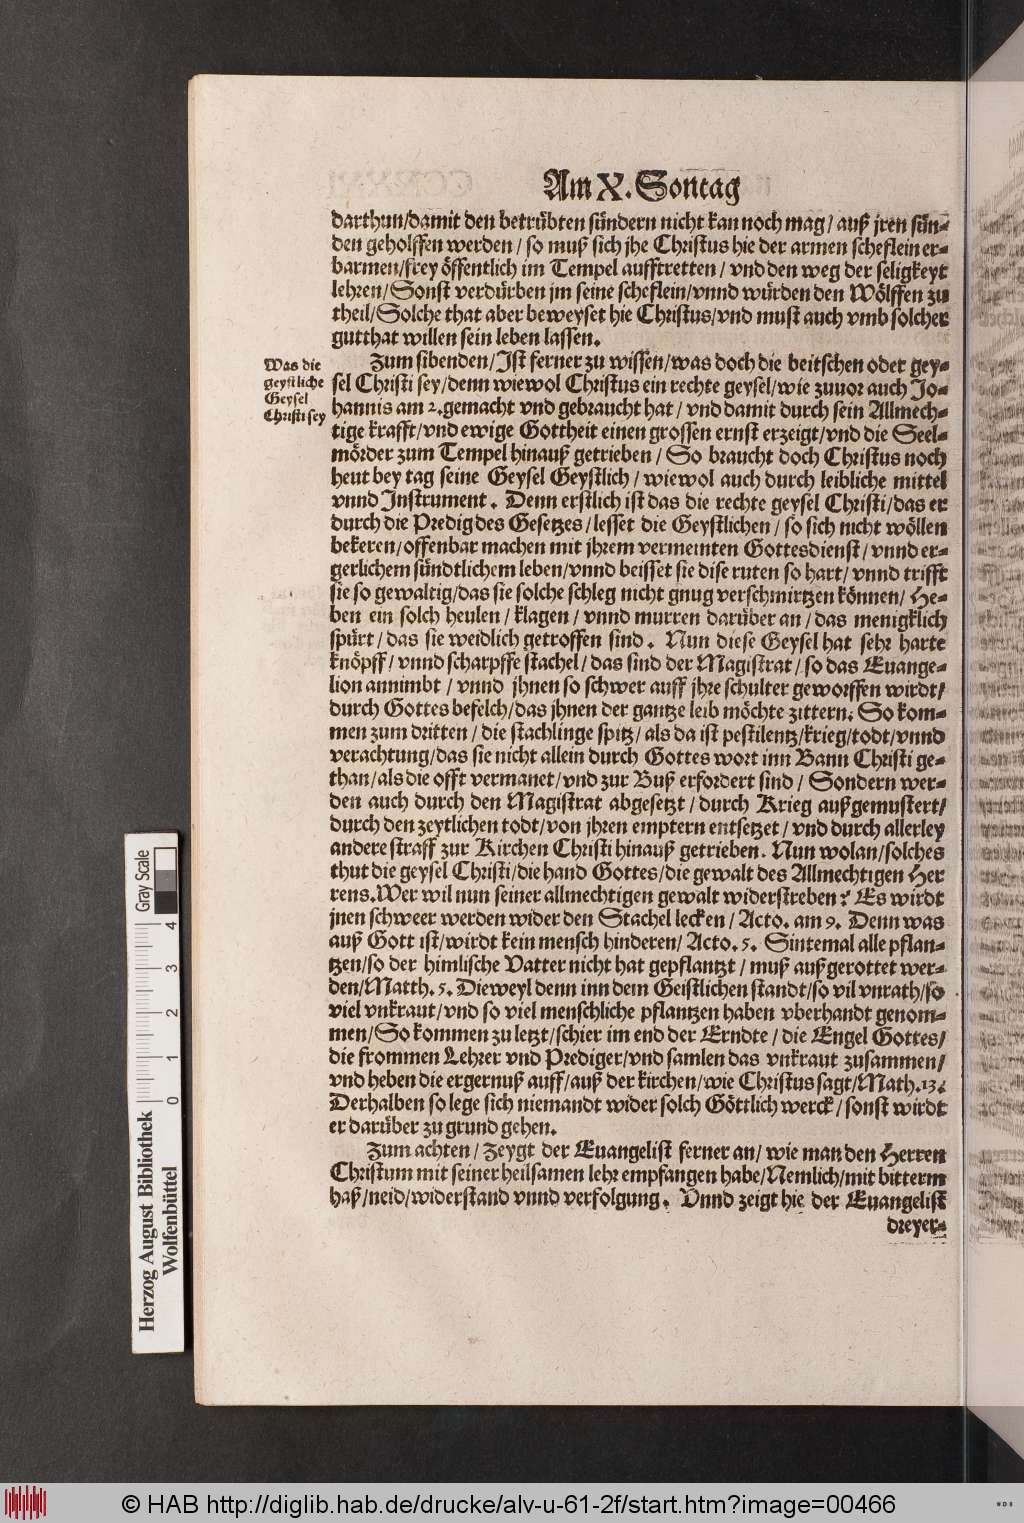 Am X. Sontag
darthun/damit den betrübten sündern nicht kan noch mag/ auß jren sün-
den geholffen werden/ so muß sich jhe Christus hie der armen scheflein er-
barmen/frey öffentlich im Tempel aufftretten/ vnd den weg der seligkeyt
lehren/Sonst verdürben jm seine scheflein/vnnd würden den Wölffen zu
theil/Solche that aber beweyset hie Christus/vnd must auch vmb solcher
gutthat willen sein leben lassen.
Was die
geystliche
Geysel
Christi sey
Zum sibenden/Ist ferner zu wissen/was doch die beitschen oder gey-
sel Christi sey/denn wiewol Christus ein rechte geysel/wie zuuor auch Jo-
hannis am 2. gemacht vnd gebraucht hat/ vnd damit durch sein Allmech-
tige krafft/vnd ewige Gottheit einen grossen ernst erzeigt/vnd die Seel-
mörder zum Tempel hinauß getrieben/ So braucht doch Christus noch
heut bey tag seine Geysel Geystlich/ wiewol auch durch leibliche mittel
vnnd Instrument. Denn erstlich ist das die rechte geysel Christi/das er
durch die Predig des Gesetzes/lesset die Geystlichen/ so sich nicht wöllen
bekeren/offenbar machen mit jhrem vermeinten Gottesdienst/ vnnd er-
gerlichem sündtlichem leben/vnnd beisset sie dise ruten so hart/ vnnd trifft
sie so gewaltig/das sie solche schleg nicht gnug verschmirtzen können/ He-
ben ein solch heulen/ klagen/ vnnd murren darüber an/ das menigklich
spürt/ das sie weidlich getroffen sind. Nun diese Geysel hat sehr harte
knöpff/ vnnd scharpffe stachel/ das sind der Magistrat/ so das Euange-
lion annimbt/ vnnd jhnen so schwer auff jhre schulter geworffen wirdt/
durch Gottes befelch/das jhnen der gantze leib möchte zittern. So kom-
men zum dritten/ die stachlinge spitz/ als da ist pestilentz/krieg/todt/vnnd
verachtung/das sie nicht allein durch Gottes wort inn Bann Christi ge-
than/als die offt vermanet/vnd zur Buß erfordert sind/ Sondern wer-
den auch durch den Magistrat abgesetzt/ durch Krieg außgemustert/
durch den zeytlichen todt/von jhren emptern entsetzet/ vnd durch allerley
andere straff zur Kirchen Christi hinauß getrieben. Nun wolan/solches
thut die geysel Christi/die hand Gottes/die gewalt des Allmechtigen Her
rens. Wer wil nun seiner allmechtigen gewalt widerstreben? Es wirdt
jnen schweer werden wider den Stachel lecken/ Acto. am 9. Denn was
auß Gott ist/wirdt kein mensch hinderen/ Acto. 5. Sintemal alle pflan-
tzen/so der himlische Vatter nicht hat gepflantzt/ muß außgerottet wer-
den/Matth. 5. Dieweyl denn inn dem Geistlichen standt/so vil vnrath/so
viel vnkraut/vnd so viel menschliche pflantzen haben vberhandt genom-
men/So kommen zu letzt/schier im end der Erndte/ die Engel Gottes/
die frommen Lehrer vnd Prediger/vnd samlen das vnkraut zusammen/
vnd heben die ergernuß auff/auß der kirchen/wie Christus sagt/Math. 13.
Derhalben so lege sich niemandt wider solch Göttlich werck/ sonst wirdt
er darüber zu grund gehen.
Zum achten/ Zeygt der Euangelist ferner an/ wie man den Herren
Christum mit seiner heilsamen lehr empfangen habe/Nemlich/mit bitterm
haß/neid/widerstand vnnd verfolgung. Vnnd zeigt hie der Euangelist
dreyer-
Gray Scale
4
3
2
1
0
Herzog August Bibliothek
Wolfenbüttel
© HAB http://diglib.hab.de/drucke/alv-u-61-2f/start.htm?image=00466